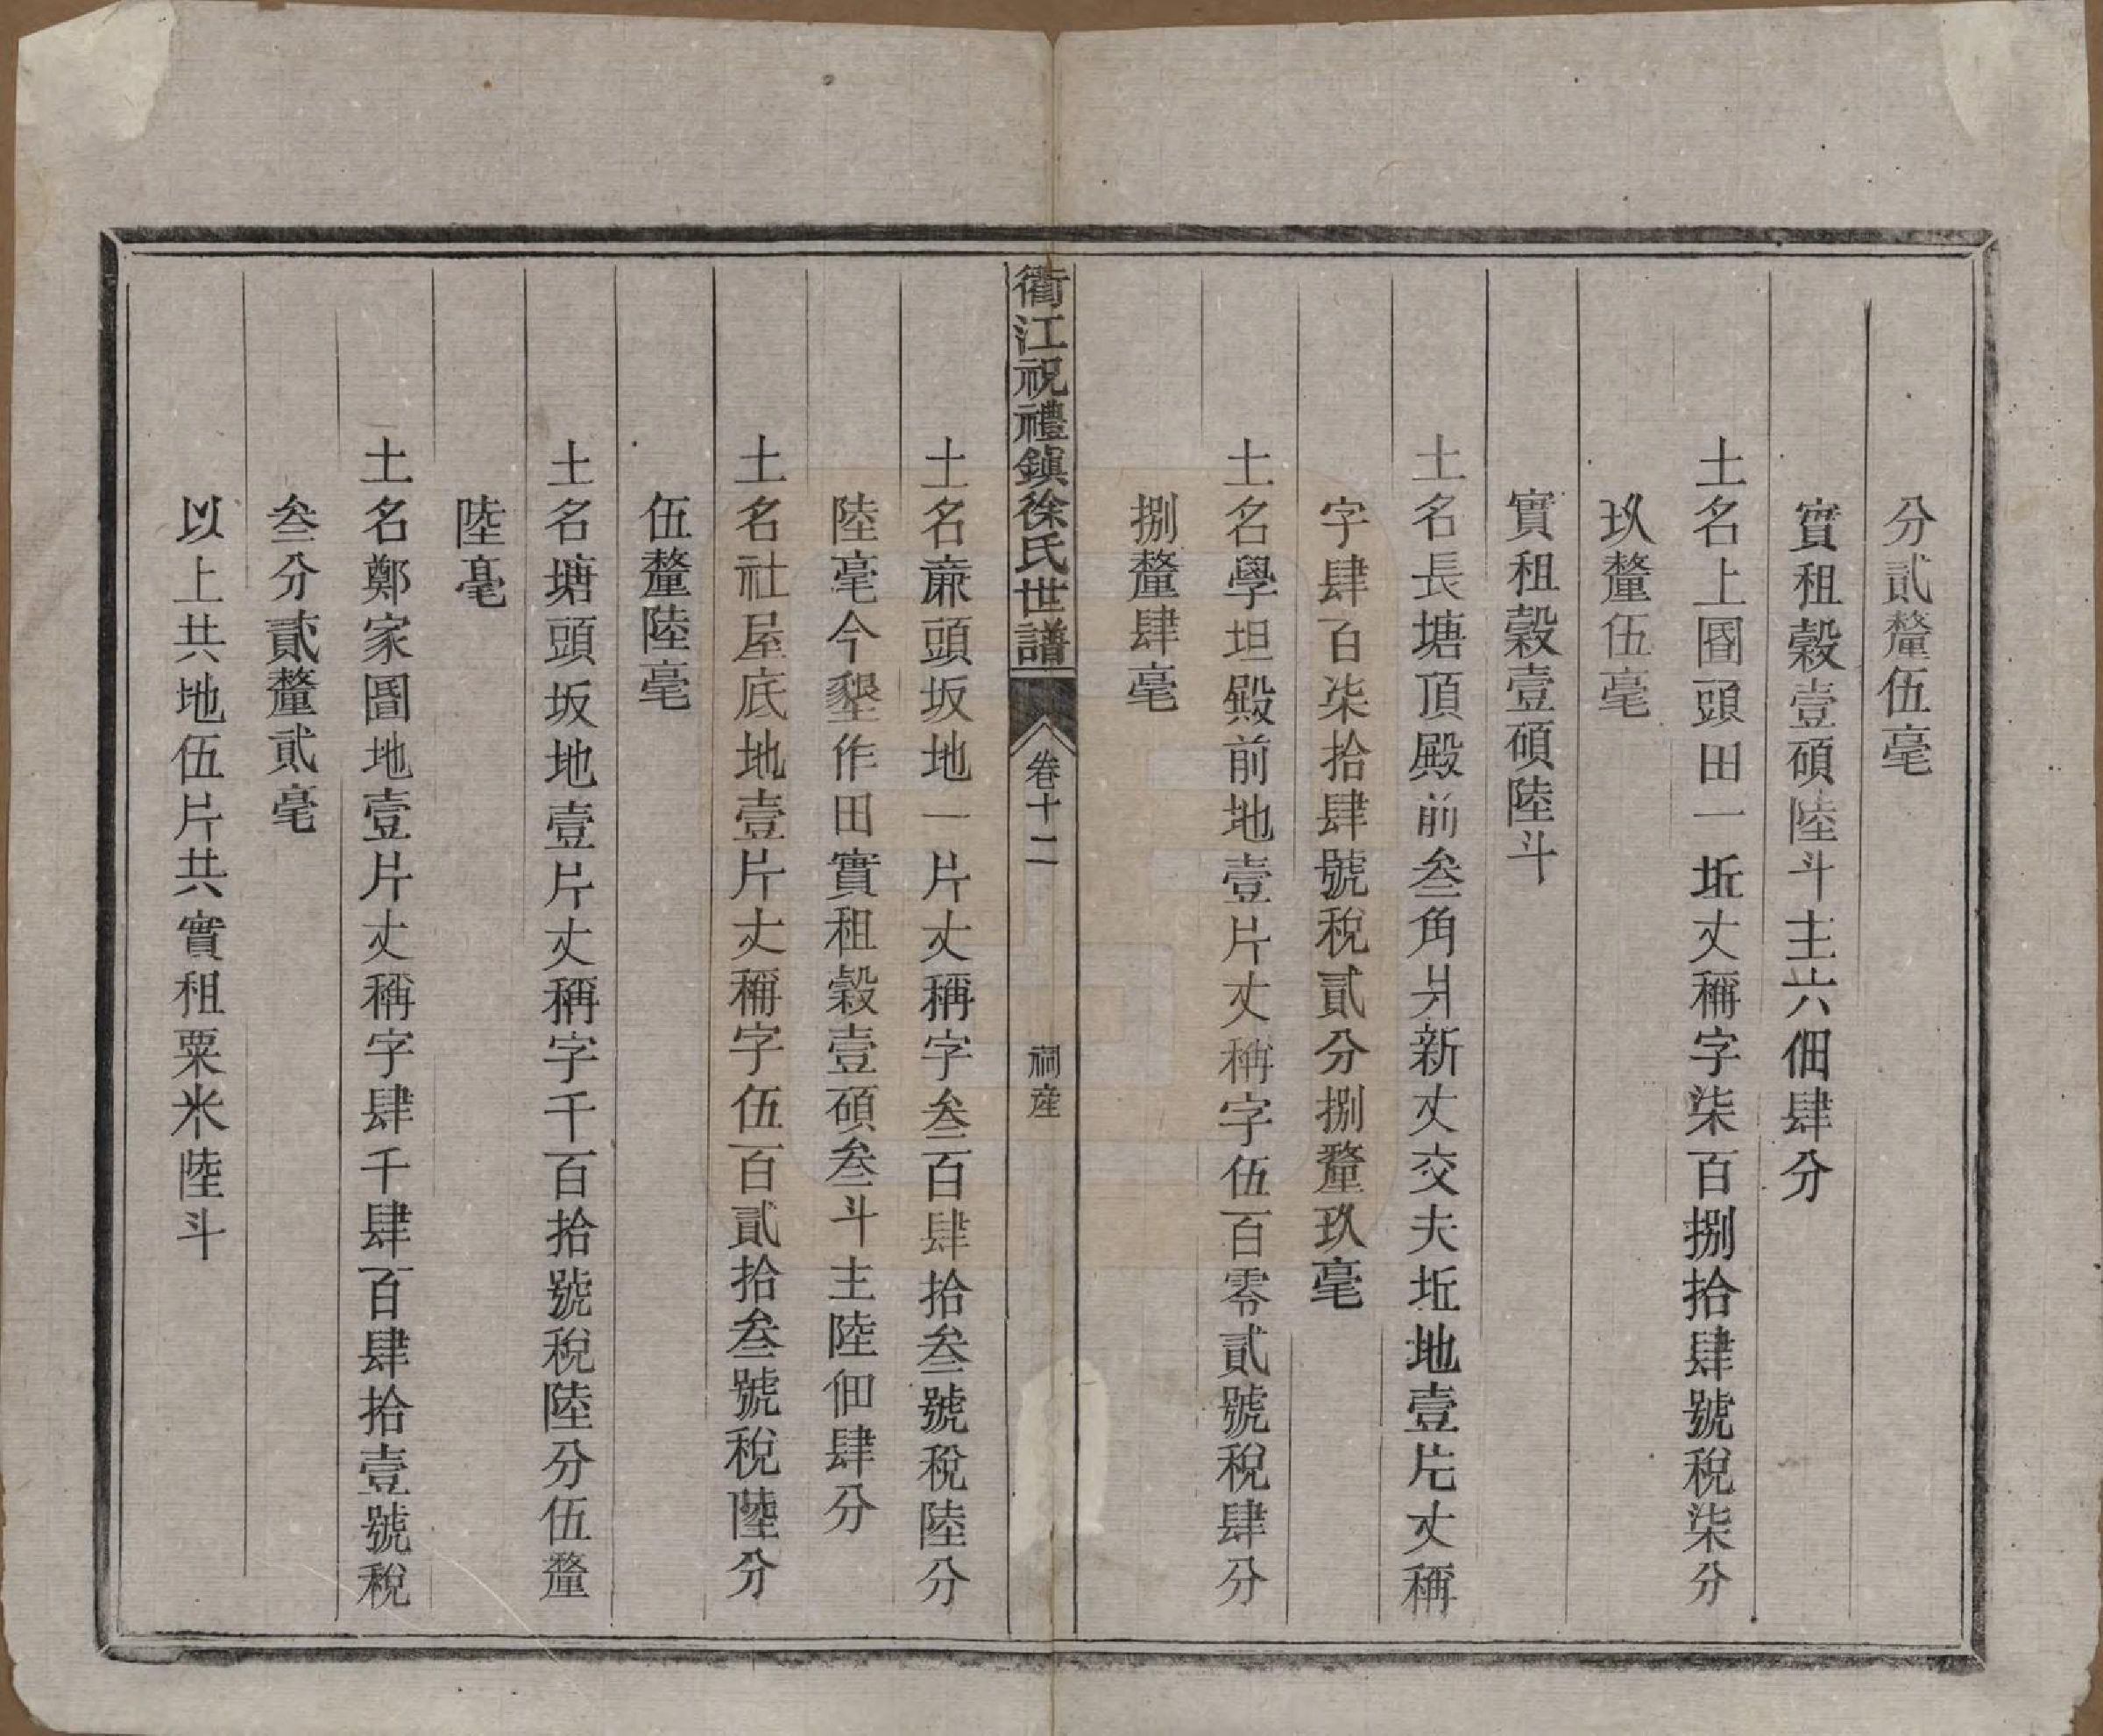 分貳釐伍毫
實租穀壹碩陸斗主六佃肆分
土名上圖頭田一坵丈稱字柒百捌拾肆號稅柒分
玖釐伍毫
實租穀壹碩陸斗
土名長塘頂殿前叁角爿新丈交夫坵地壹片丈稱
字肆百柒拾肆號稅貳分捌釐玖毫
土名學坦殿前地壹片丈稱字伍百零貳號稅肆分
捌釐肆毫
衢江祝禮鎮徐氏世譜
卷十二
祠産
土名亷頭坂地一片丈稱字叁百肆拾叁號稅陸分
陸毫今墾作田實租穀壹碩叁斗主陸佃肆分
土名社屋底地壹片丈稱字伍百貳拾叁號稅陸分
伍釐陸毫
土名塘頭坂地壹片丈稱字千百拾號稅陸分伍釐
陸毫
土名鄭家圖地壹片丈稱字肆千肆百肆拾壹號稅
叁分貳釐貳毫
以上共地伍片共實租粟米陸斗